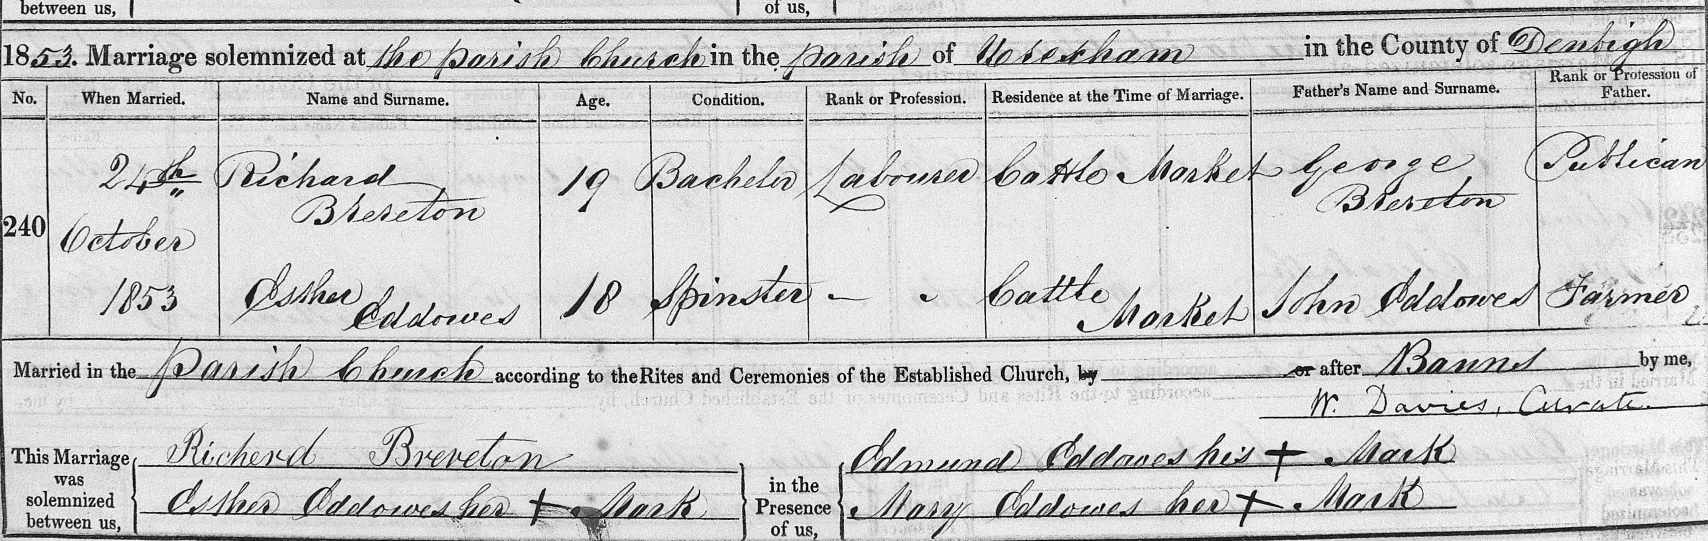 between us,
of us,
1853. Marriage solemnized at the parish Church in the parish of Wrexham in the County of Denbigh
No. When Married. Name and Surname. Age. Condition. Rank or Profession. Residence at the Time of Marriage. Father's Name and Surname. Rank or Profession of Father.
24th Richard Brereton 19 Bachelor Labourer Cattle Market George Brereton Publican
240 October
1853 Esther Eddowes 18 Spinster - - Cattle Market John Eddowes Farmer
Married in the parish Church according to the Rites and Ceremonies of the Established Church, by or after Banns by me,
W. Davies, Curate.
This Marriage was solemnized between us,
Richerd Brereton
Esther Eddowes her + Mark
in the Presence of us,
Edmund Eddowes his + Mark
Mary Eddowes her + Mark